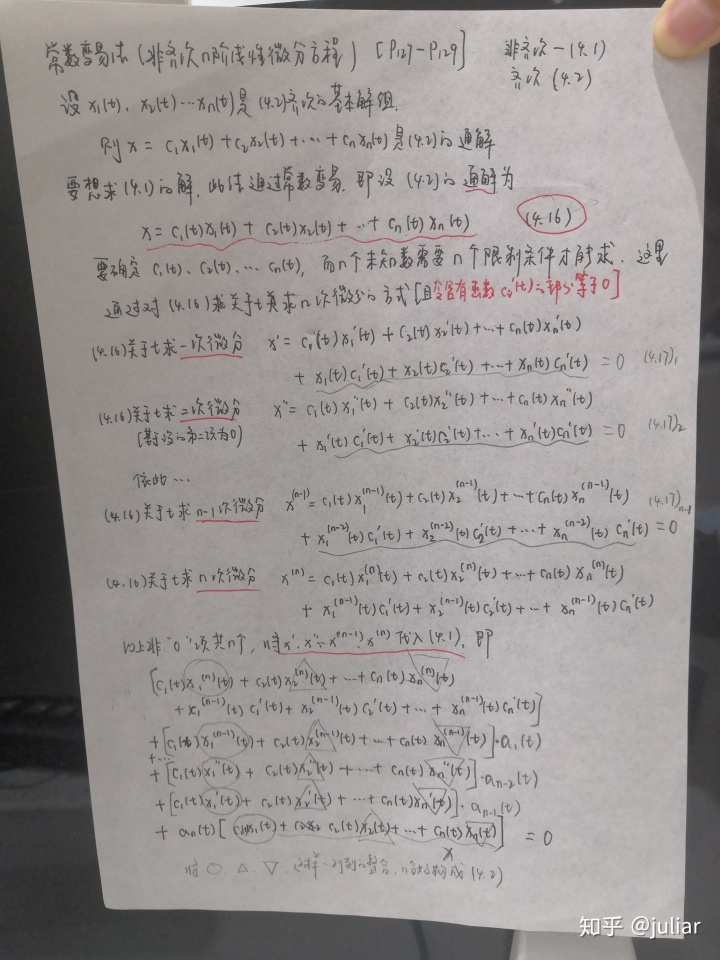 常数变易法(非齐次n阶线性微分方程) [P127-P129] 非齐次-(4.1)
齐次(4.2)
设 x₁(t), x₂(t)…xn(t)是(4.2)齐次的基本解组.
则 x = c₁x₁(t) + c₂x₂(t) + … + cnxn(t)是(4.2)的通解
要想求(4.1)的解, 此法通过常数变易, 即设(4.2)的通解为
x = c₁(t)x₁(t) + c₂(t)x₂(t) + … + cn(t)xn(t) (4.16)
要确定 c₁(t), c₂(t), … cn(t), 而n个未知数需要n个限制条件才能求. 这里
通过对(4.16)求关于t求n次微分的方式[且令含有函数ci'(t)的部分等于0]
(4.16)关于t求一次微分 x' = c₁(t)x₁'(t) + c₂(t)x₂'(t) + … + cn(t)xn'(t)
+ x₁(t)c₁'(t) + x₂(t)c₂'(t) + … + xn(t)cn'(t) = 0 (4.17)₁
(4.16)关于t求二次微分 x'' = c₁(t)x₁''(t) + c₂(t)x₂''(t) + … + cn(t)xn''(t)
[基于设的第二项为0] + x₁'(t)c₁'(t) + x₂'(t)c₂'(t) + … + xn'(t)cn'(t) = 0 (4.17)₂
依此…
(4.16)关于t求n-1次微分 x⁽ⁿ⁻¹⁾ = c₁(t)x₁⁽ⁿ⁻¹⁾(t) + c₂(t)x₂⁽ⁿ⁻¹⁾(t) + … + cn(t)xn⁽ⁿ⁻¹⁾(t) (4.17)n-1
+ x₁⁽ⁿ⁻²⁾(t)c₁'(t) + x₂⁽ⁿ⁻²⁾(t)c₂'(t) + … + xn⁽ⁿ⁻²⁾(t)cn'(t) = 0
(4.16)关于t求n次微分 x⁽ⁿ⁾ = c₁(t)x₁⁽ⁿ⁾(t) + c₂(t)x₂⁽ⁿ⁾(t) + … + cn(t)xn⁽ⁿ⁾(t)
+ x₁⁽ⁿ⁻¹⁾(t)c₁'(t) + x₂⁽ⁿ⁻¹⁾(t)c₂'(t) + … + xn⁽ⁿ⁻¹⁾(t)cn'(t)
以上非"0"项共n个, 将x', x''…x⁽ⁿ⁻¹⁾, x⁽ⁿ⁾代入(4.1), 即
[c₁(t)x₁⁽ⁿ⁾(t) + c₂(t)x₂⁽ⁿ⁾(t) + … + cn(t)xn⁽ⁿ⁾(t)
+ x₁⁽ⁿ⁻¹⁾(t)c₁'(t) + x₂⁽ⁿ⁻¹⁾(t)c₂'(t) + … + xn⁽ⁿ⁻¹⁾(t)cn'(t)]
+ [c₁(t)x₁⁽ⁿ⁻¹⁾(t) + c₂(t)x₂⁽ⁿ⁻¹⁾(t) + … + cn(t)xn⁽ⁿ⁻¹⁾(t)]·a₁(t)
+…
+ [c₁(t)x₁''(t) + c₂(t)x₂''(t) + … + cn(t)xn''(t)]·an-2(t)
+ [c₁(t)x₁'(t) + c₂(t)x₂'(t) + … + cn(t)xn'(t)]·an-1(t)
+ an(t)[c₁(t)x₁(t) + c₂(t)x₂(t) + … + cn(t)xn(t)] = 0
x
将○, △, ▽, 这样一列列的整合, 构成(4.2)
知乎 @juliar